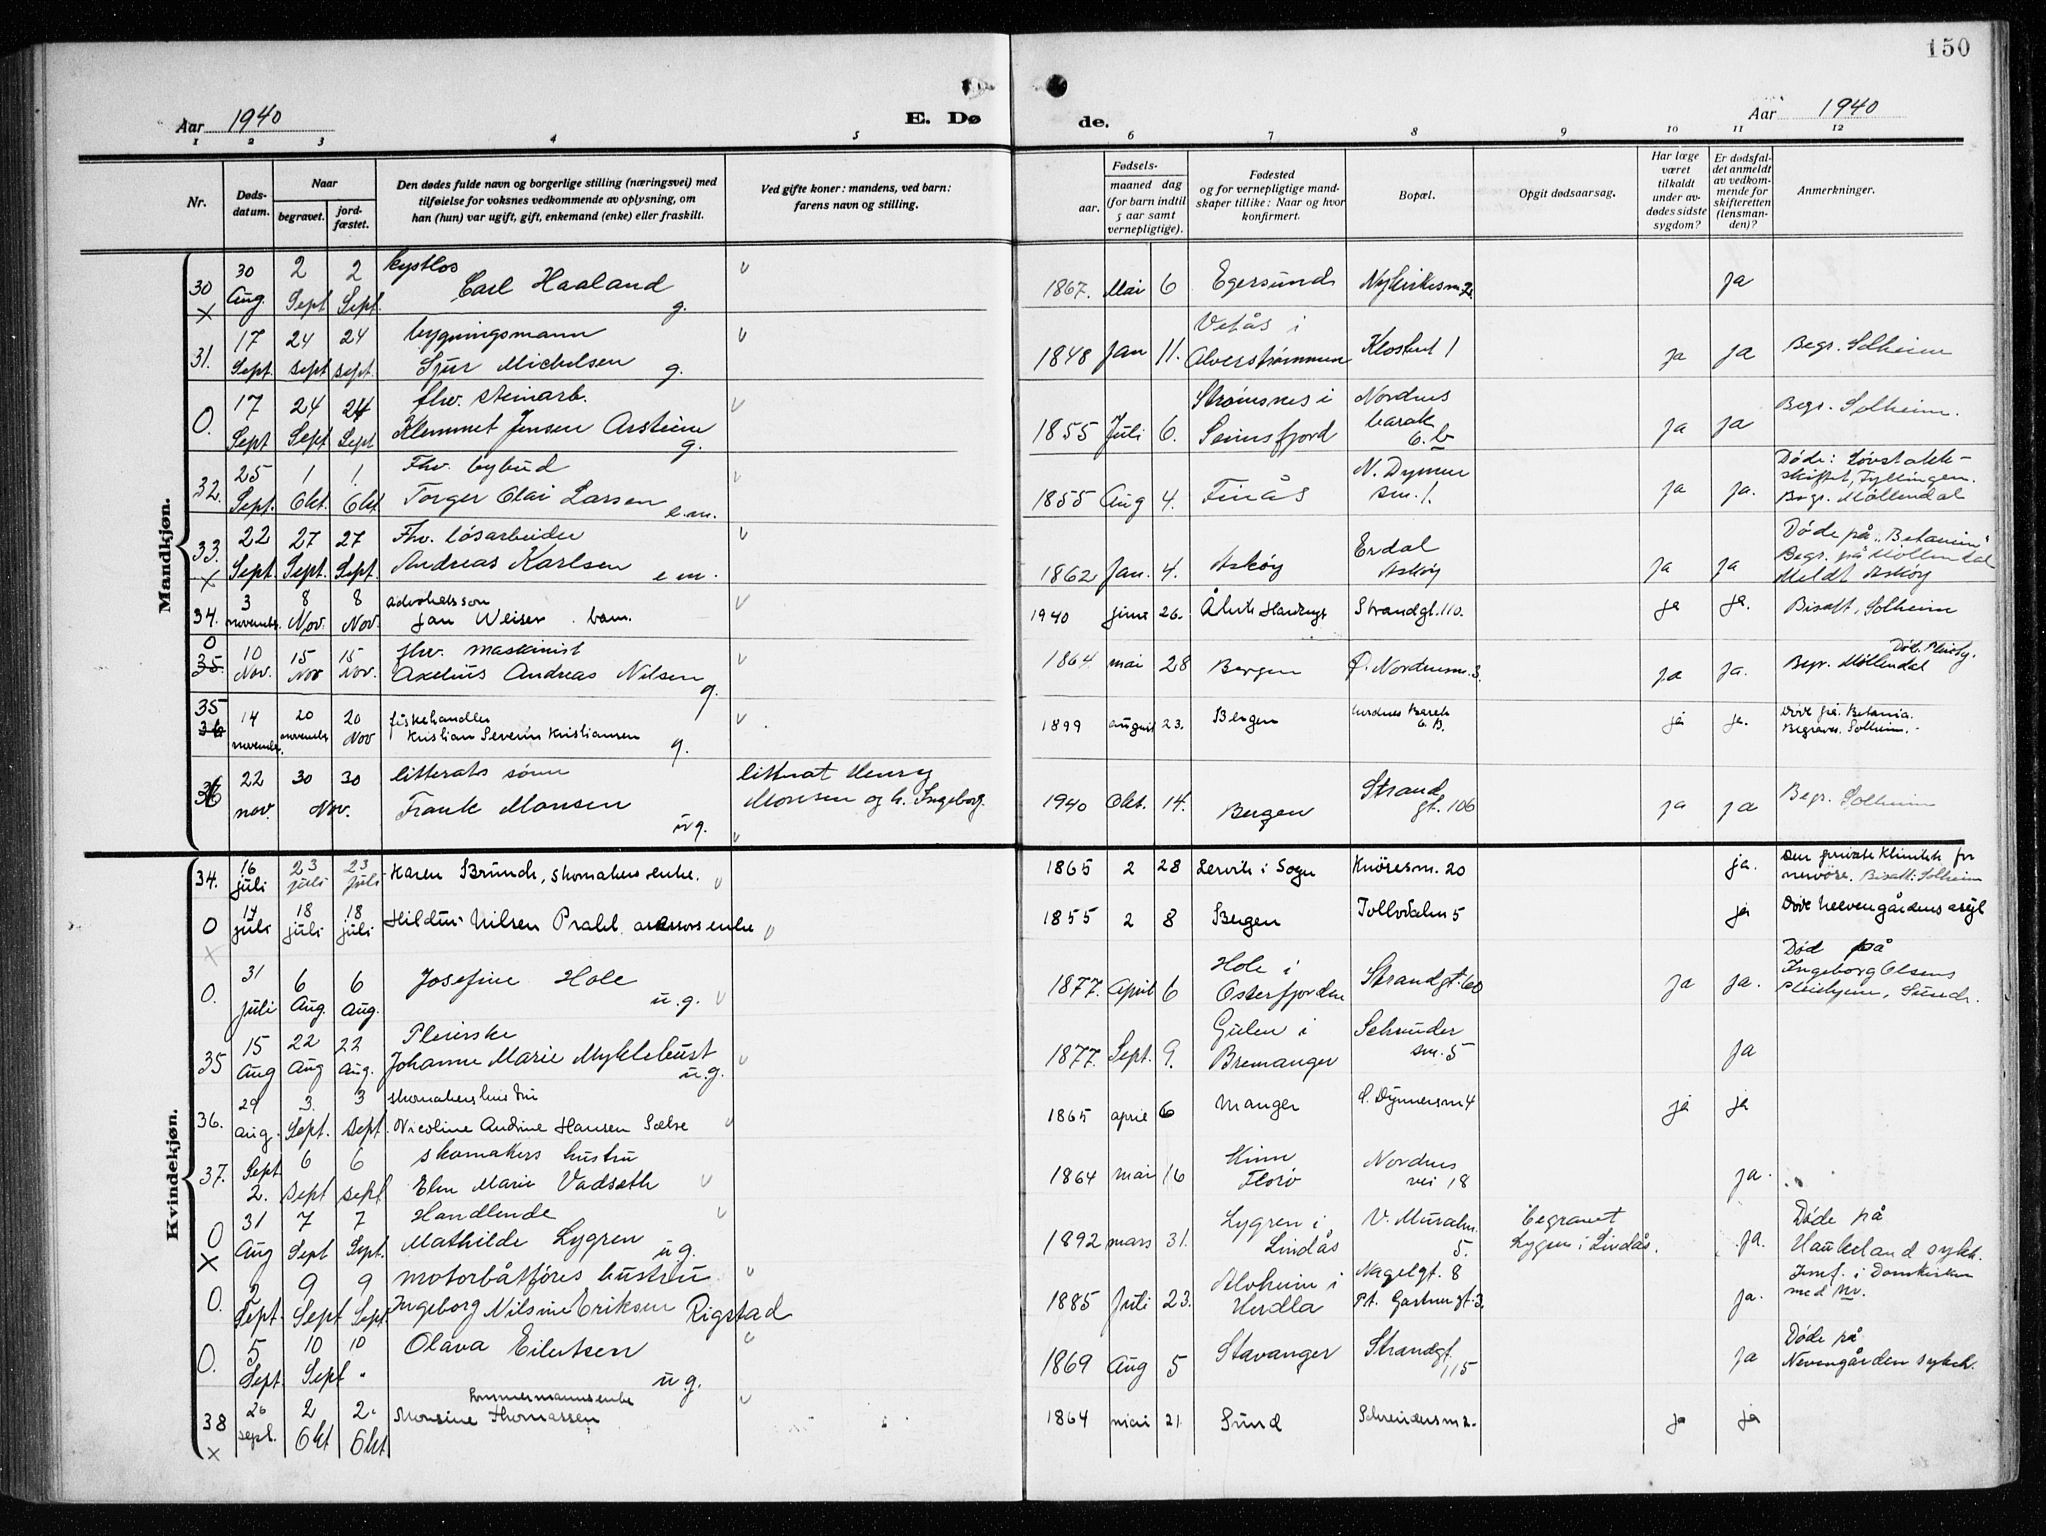 150
Aar 1940
E. Dø
de.
Aar 1940
1 2 3 4 5 6 7 8 9 10 11 12
Nr.
Døds-
datum.
Naar
begravet.
jord-
fæstet.
Den dødes fulde navn og borgerlige stilling (næringsvei) med
tilføielse for voksnes vedkommende av oplysning, om
han (hun) var ugift, gift, enkemand (enke) eller fraskilt.
Ved gifte koner: mandens, ved barn:
farens navn og stilling.
Fødsels-
aar.
maaned dag
(for barn indtil
5 aar samt
vernepligtige).
Fødested
og for vernepligtige mand-
skaper tillike: Naar og hvor
konfirmert.
Bopæl.
Opgit dødsaarsag.
Har læge
været
tilkaldt
under av-
dødes sidste
sygdom?
Er dødsfal-
det anmeldt
av vedkom-
mende for
skifteretten
(lensman-
den)?
Anmerkninger.
Mandkjøn.
30 2 2 kystlos
30 Aug. Sept Sept. Carl Haaland g. 1867. Mai 6 Egersund ja
x
17 24 24 bygningsmann Vetås i
31. Sept. sept sept. Sjur Michelsen g. 1848 Jan 11. Alverstrømmen Klostert 1 ja ja Begr. Solheim
17 24 24 fhv. steinarb. Strømsnes i Nordnes
O. Sept Sept Sept Klemmet Jensen Arsteim g. 1855 Juli 6. Seimsfjord barak 6. b ja ja Begr. Solheim.
25 1 1. Fhv. bybud N. Dymer
32. Sept. Okt. Okt Torger Olai Larsen e.m. 1855 Aug 4. Finås sm. 1. ja ja. Døde: Løvstakk-
skiftet, Fyllingen.
Begr. Møllendal
22 27 27 Fhv. løsarbeider Erdal
33. Sept. Sept. Sept. Andreas Karlsen e m. 1862 Jan. 4. Askøy Askøy ja ja Døde på "Betanien"
Begr. på Møllendal
Meldt Askøy
x
3 8 8 advokatsson
34. november. Nov. Nov. Jan Weiser. barn. 1940 juni 26. Strandgt. 110. ja ja. Bisatt, Solheim
O 10 15 15 fhv. maskinist
35. Nov. Nov Nov. Axelius Andreas Nilsen g. 1864 mai 28 Bergen Ø. Nordnesm. 3. ja ja. Begr. Møllendal
35
36 14 20 20 fiskehandler
november. november Nov Kristian Severin Kristiansen g. 1899 august 23. Bergen Nordnes Barak 6. B. ja ja. Døde på Betania.
Begraves. Solheim.
22 30 30 litterats sønn litterat Henry
36 nov. Nov. Frank Monsen ug. Monsen og h. Ingeborg. 1940 Okt. 14. Bergen Strand
gt. 106 ja ja Begr. Solheim
Kvindekjøn.
16 23 23
34. juli juli juli Karen Brunds, skomakers enke. 1865 2 28 Lervik i Sogn Knøsesm. 20 ja. Den private klinikk for
nervøse. Bisatt: Solheim
17 18 18
O juli juli juli Hildur Nilsen Prahl assessors enke 1855 2 8 Bergen Tollbodalm 5 ja Døde Neevengårdens asyl
x
31 6 6 Josefine Hole Hole i
O. juli Aug. Aug. u.g. 1877. April 6 Osterfjorden Strandgt. 60 ja ja. Død på
Ingeborg Olsens
Pleiehjem, Sund.
15 22 22 Pleierske Gulen i Schrøder
35 Aug Aug Aug. Johanne Marie Myklebust u.g. 1877. Sept. 9. Bremanger sm. 5 ja
29 3. 3 skomakers hustru
36. aug. Sept. sept. Nicoline Andrine Hansen Sælse 1865 april 6 Manger Ø. Dymersm 4 ja ja
Sept 6 6 skomakers hustru Kinn Nordnes
37. 2. sept sept Elen Marie Vadseth 1864 mai 16 Florø vei 18 ja.
31 7 7 Handlende Lygren i V. Muralm. begravet
O Aug Sept Sept. Mathilde Lygren u.g. 1892 mars 31. Lindås 5. Lygren i Lindås. ja. Døde på
Haukeland sykeh.
X
2 9 9 motorbåtføres hustru Alvheim i Nagelgt. 8
O. Sept. Sept Sept. Ingeborg Nilsine Eriksen Rigstad 1885 Juli 23. Herdla Pt. Gartnergt. 3. ja. Innf. i Domkirken
med Nr.
5 10 10 Olava Eilertsen
O. Sept. Sept. " u.g. 1869 Aug 5 Stavanger Strandgt.
115 ja Døde på
Nevengården sykeh.
26 2 2. tømmermannsenke
38 sept. Okt Okt Monsine Thomassen 1864 mai 21. Sund Schreudersm 2. ja ja
x